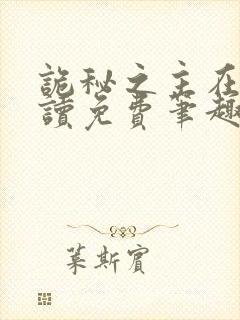 詭秘之主在
讀免費筆趣
萊斯賓